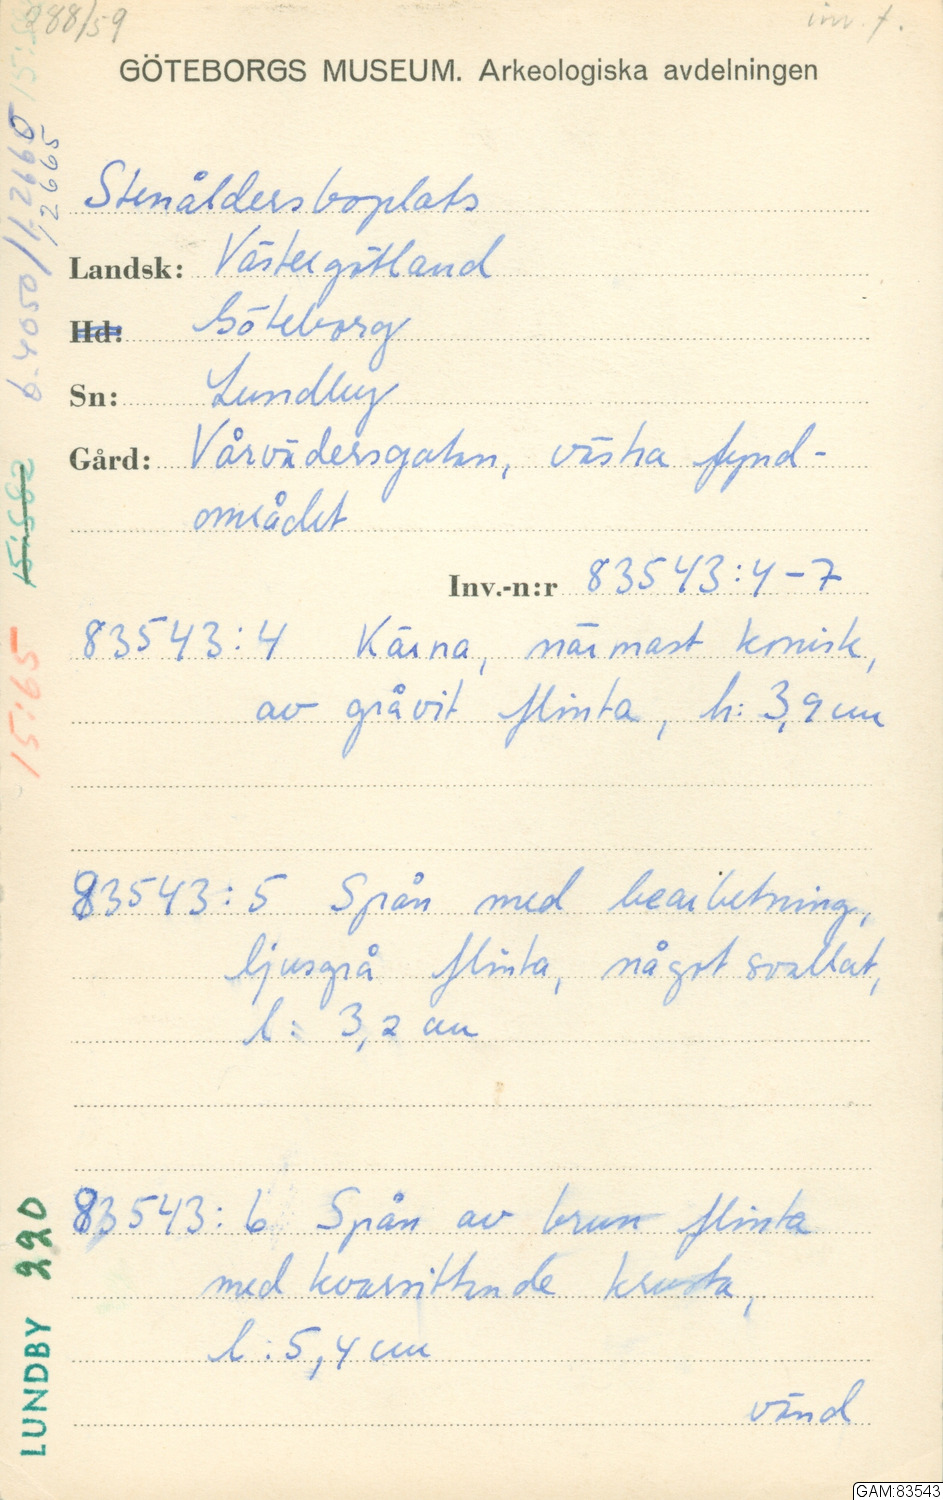 288/59
inv. f.
GÖTEBORGS MUSEUM. Arkeologiska avdelningen
Stenåldersboplats
Landsk: Västergötland
Hd: Göteborg
Sn: Lundby
Gård: Vårvädersgatan, västra fynd-
området
Inv.-n:r 83543:4-7
83543:4 Kärna, närmast konisk,
av gråvit flinta, h: 3,9 cm
83543:5 Spån med bearbetning,
ljusgrå flinta, något svallat,
l: 3,2 cm
83543:6 Spån av brun flinta
med kvarsittande krusta,
l: 5,4 cm
vänd
LUNDBY 220
15:65
15:582
GAM:83543